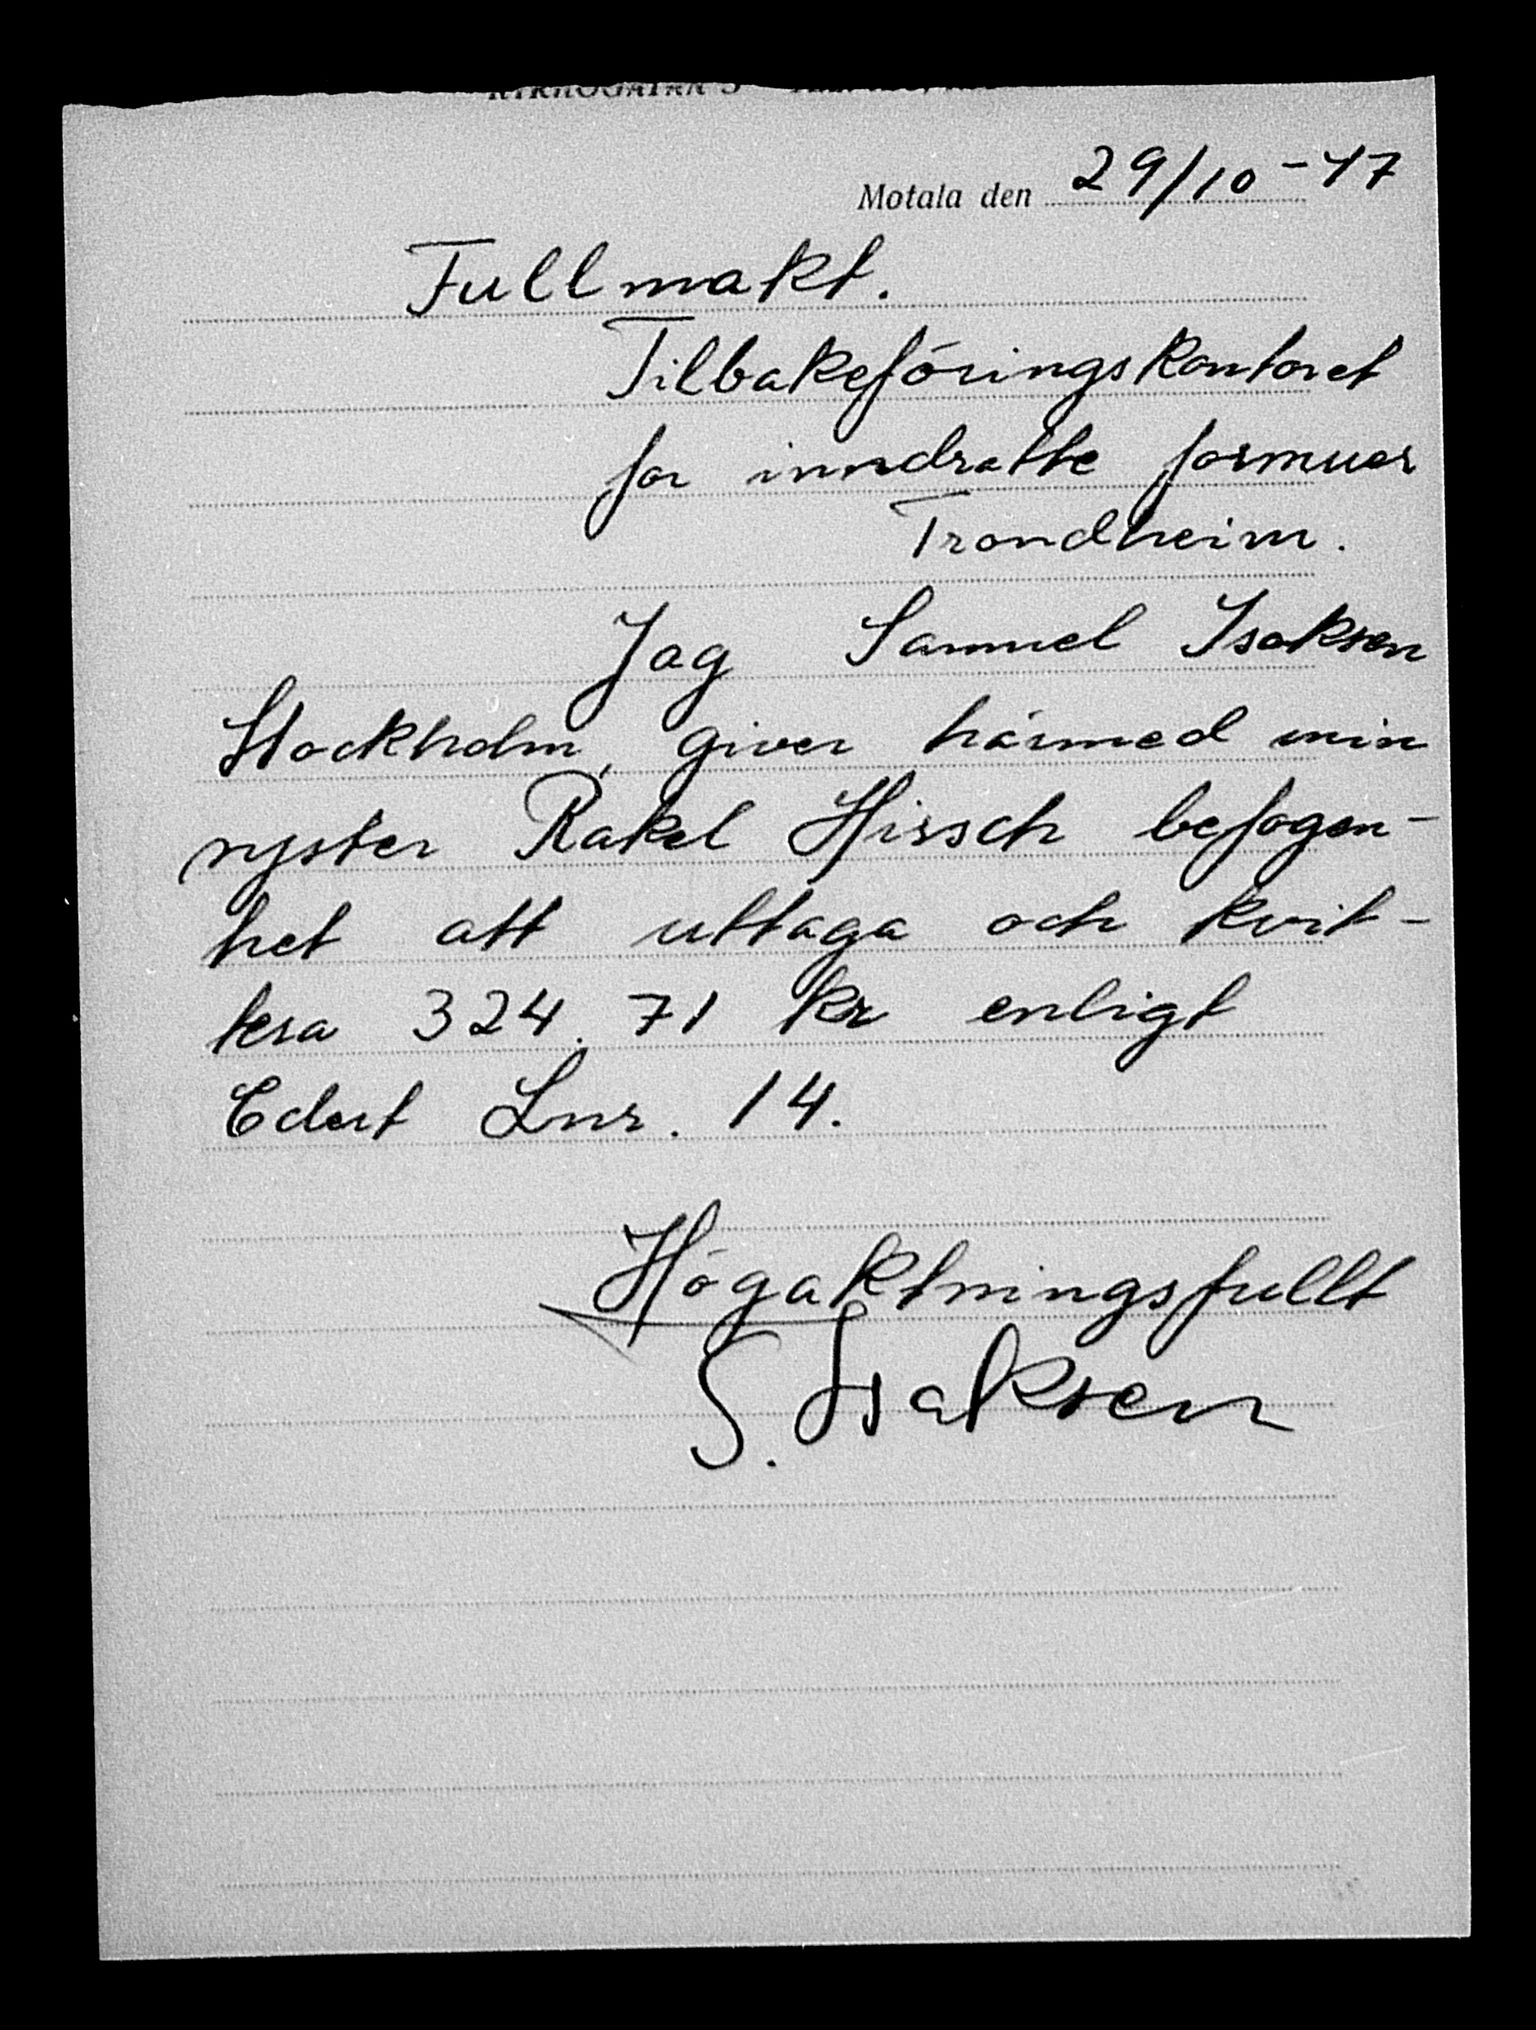 Motala den 29/10-47
Fullmakt.
Tilbakeföringskontoret
for inndratte formuer
Trondheim.
Jag Samuel Isaksen
Stockholm, giver härmed min
syster Rakel Hirsch befogen-
het att uttaga och kvit-
tera 324.71 kr enligt
Edert Lnr. 14.
Högaktningsfullt
S. Isaksen